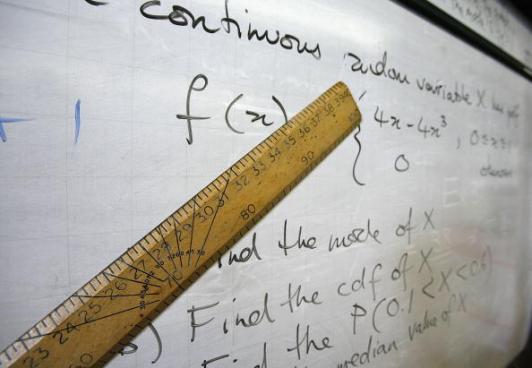 continuous random variable X has
+ 1
f(x) { 4x - 4x³, 0 ≤ x ≤ 1
0
Find the mode of X
b) Find the cdf of X
Find the P(0.1 < X < 0.6)
median value of X
23 24 25 26 27 28 29 30 31 32 33 34 35 36 37 38 39
70 80 90